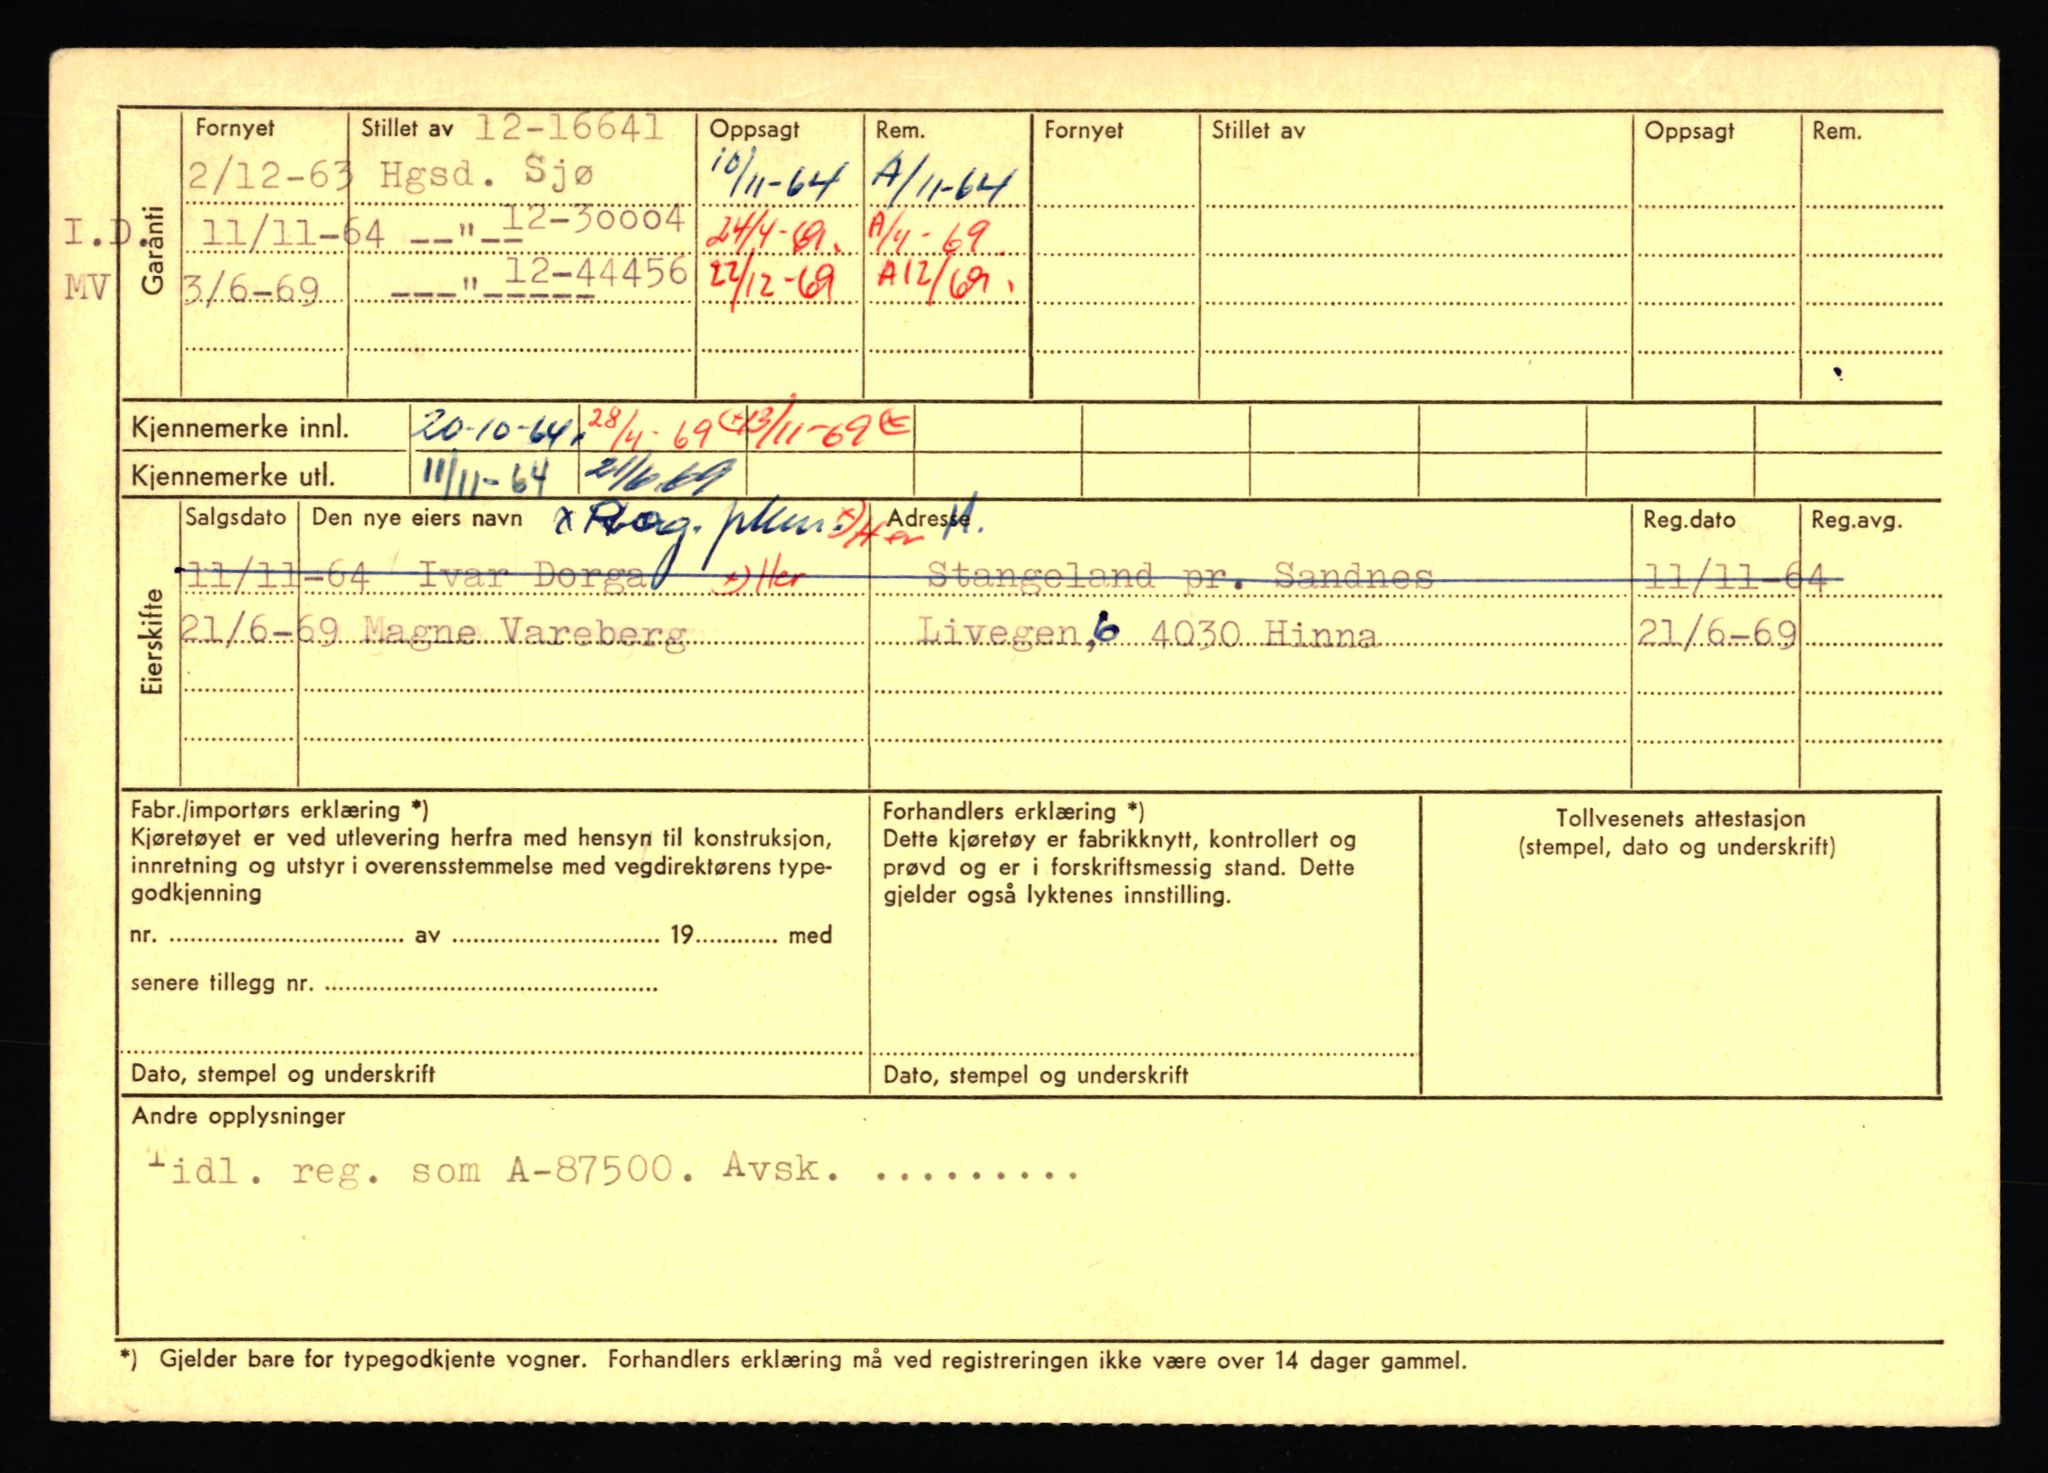 Garanti
Fornyet Stillet av 12-16641 Oppsagt Rem. Fornyet Stillet av Oppsagt Rem.
2/12-63 Hgsd. Sjø 10/11-64 A/11-64
I.D. 11/11-64 --"-- 12-30004 24/4-69. A/4-69
MV 3/6-69 ---"----- 12-44456 22/12-69 A12/69.
Kjennemerke innl. 20-10-64. 28/4-69 13/11-69
Kjennemerke utl. 11/11-64 21/6.69
Eierskifte
Salgsdato Den nye eiers navn x Rog. Adresse Reg.dato Reg.avg.
11/11-64 Ivar Dorga x) Her Stangeland pr. Sandnes 11/11-64
21/6-69 Magne Vareberg Livegen, 6 4030 Hinna 21/6-69
Fabr./importørs erklæring *)
Kjøretøyet er ved utlevering herfra med hensyn til konstruksjon,
innretning og utstyr i overensstemmelse med vegdirektørens type-
godkjenning
nr. .................... av .................... 19............ med
senere tillegg nr. ....................
Dato, stempel og underskrift
Forhandlers erklæring *)
Dette kjøretøy er fabrikknytt, kontrollert og
prøvd og er i forskriftsmessig stand. Dette
gjelder også lyktenes innstilling.
Dato, stempel og underskrift
Tollvesenets attestasjon
(stempel, dato og underskrift)
Andre opplysninger
Tidl. reg. som A-87500. Avsk. .........
*) Gjelder bare for typegodkjente vogner. Forhandlers erklæring må ved registreringen ikke være over 14 dager gammel.